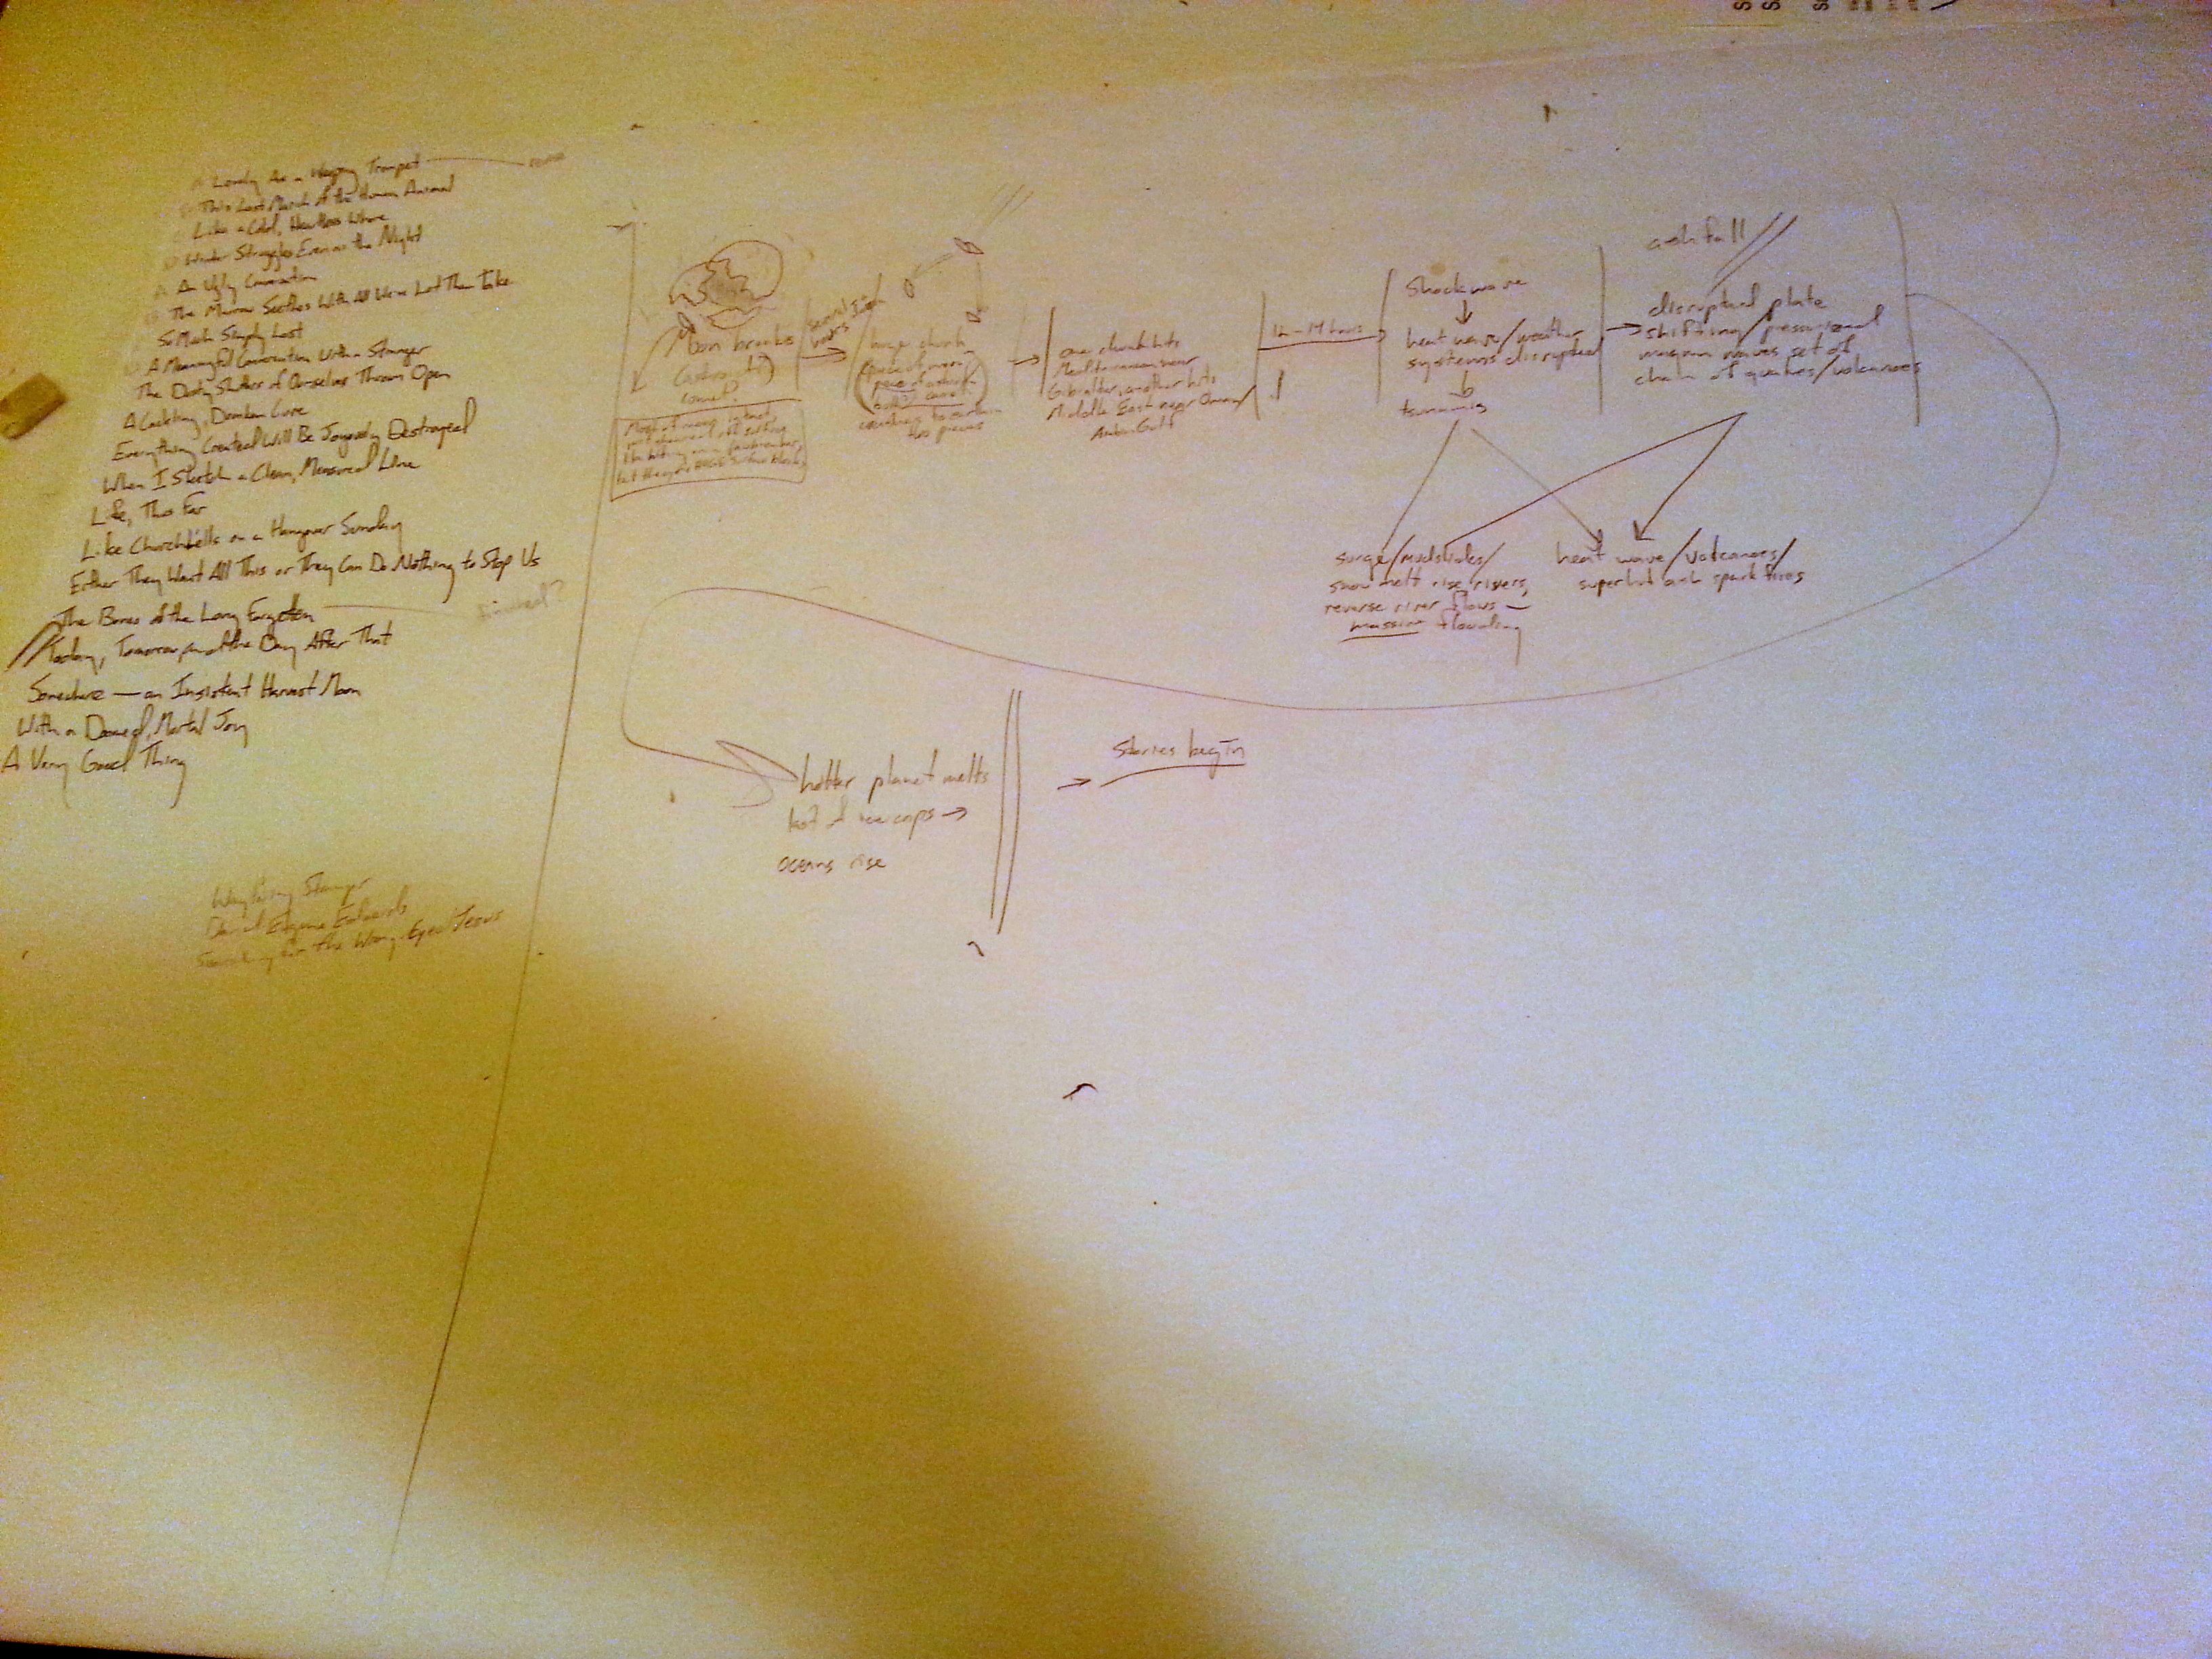 Lonely As a Trumpet
This Last March of the Human Animal
Like a Cold, Heartless Whore
Winter Struggles Even as the Night
An Ugly Conversation
The Marrow Seethes With All We've Let Them Take
So Much Simply Lost
A Meaningful Conversation With a Stranger
The Dusty Shutter of Ourselves Thrown Open
A Cackling, Drunken Love
Everything Created Will Be Joyously Destroyed
When I Sketch a Clean, Measured Line
Life, Thus Far
Like Churchbells on a Hangover Sunday
Either They Want All This or They Can Do Nothing to Stop Us
The Bones of the Long Forgotten
Today, Tomorrow, and the Day After That
Somewhere — an Insistent Harvest Moon
With a Doomed, Mortal Joy
A Very Good Thing
Wayfaring Stranger
David Eugene Edwards
Searching for the Wrong-Eyed Jesus
Moon breaks
(asteroid?)
comet?
Most of moon intact,
several
hours
huge chunk
(piece of moon
piece of asteroid
two pieces
one chunk hits
Mediterranean near
Gibralter, another hits
Middle East near Oman/
Arabian Gulf
12-14 hours
Shockwave
heat wave/weather
systems disrupted
tsunamis
ashfall
disrupted plate
shifting/pressurized
magma waves set of
chain of quakes/volcanoes
surge/mudslides/
snow melt rise rivers,
reverse river flows —
massive flooding
heat wave/volcanoes/
superhot ash spark fires
hotter planet melts
lot of ice caps →
oceans rise
→ Stories begin